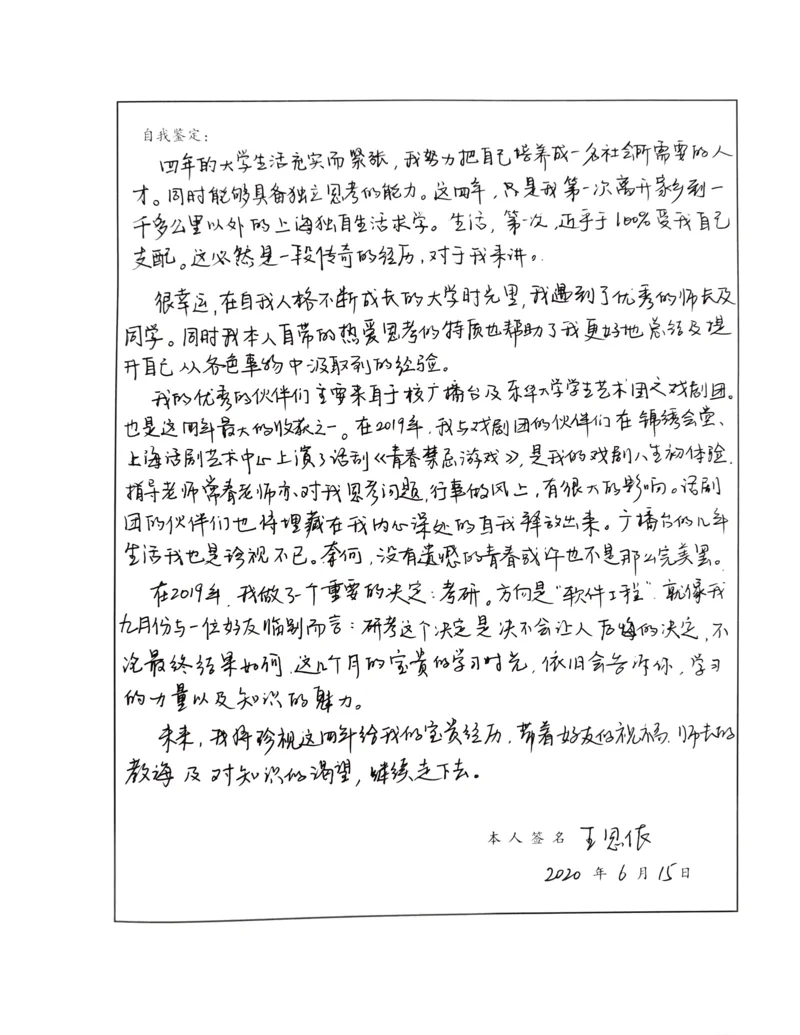 自我鉴定：
四年的大学生活充实而紧张，我努力把自己培养成一名社会所需要的人
才。同时能够具备独立思考的能力。这四年，只是我第一次离开家乡到一
千多公里以外的上海独自生活求学。生活，第一次，近乎于100%受我自己
支配。这必然是一段传奇的经历，对于我来讲。
很幸运，在自我人格不断成长的大学时光里，我遇到了优秀的师长及
同学。同时我本人自带的热爱思考的特质也帮助了我更好地总结及提
升自己从各色事物中汲取到的经验。
我的优秀的伙伴们主要来自于校广播台及东华大学学生艺术团之戏剧团。
也是这四年最大的收获之一。在2019年，我与戏剧团的伙伴们在锦绣会堂、
上海话剧艺术中心上演了话剧《青春禁忌游戏》，是我的戏剧人生初体验.
指导老师常春老师亦对我思考问题，行事的风上，有很大的影响。话剧
团的伙伴们也将埋藏在我内心深处的自我释放出来。广播台的几年
生活我也是珍视不已。奈何，没有遗憾的青春或许也不是那么完美罢。
在2019年，我做了一个重要的决定：考研。方向是“软件工程”. 就像我
九月份与一位好友临别而言：研考这个决定是决不会让人后悔的决定，不
论最终结果如何，这几个月的宝贵的学习时光，依旧会告诉你，学习
的力量以及知识的魅力。
未来，我将珍视这四年给我的宝贵经历，带着好友的祝福，师长的
教诲及对知识的渴望，继续走下去。
本人签名 王思依
2020 年 6 月 15 日